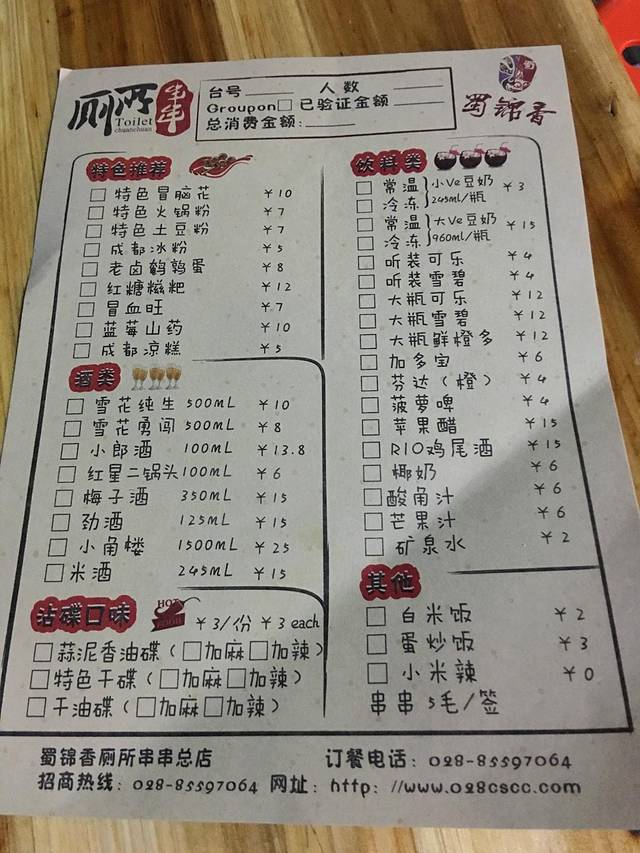 厕所串串
Toilet
chuanchuan
台号 人数
Groupon□ 已验证金额
总消费金额:
蜀锦香
特色推荐
□ 特色冒脑花 ¥10
□ 特色火锅粉 ¥7
□ 特色土豆粉 ¥7
□ 成都冰粉 ¥5
□ 老卤鹌鹑蛋 ¥8
□ 红糖糍粑 ¥12
□ 冒血旺 ¥7
□ 蓝莓山药 ¥10
□ 成都凉糕 ¥5
酒类
□ 雪花纯生 500mL ¥10
□ 雪花勇闯 500mL ¥8
□ 小郎酒 100mL ¥13.8
□ 红星二锅头100mL ¥6
□ 梅子酒 350mL ¥15
□ 劲酒 125mL ¥15
□ 小角楼 1500mL ¥25
□ 米酒 245mL ¥15
沾碟口味 HOT ¥3/份 ¥3 each
□蒜泥香油碟(□加麻□加辣)
□特色干碟(□加麻□加辣)
□干油碟(□加麻□加辣)
饮料类
□ 常温 小Ve豆奶 ¥3
□ 冷冻 245ml/瓶
□ 常温 大Ve豆奶 ¥15
□ 冷冻 960ml/瓶
□ 听装可乐 ¥4
□ 听装雪碧 ¥4
□ 大瓶可乐 ¥12
□ 大瓶雪碧 ¥12
□ 大瓶鲜橙多 ¥12
□ 加多宝 ¥6
□ 芬达(橙) ¥4
□ 菠萝啤 ¥4
□ 苹果醋 ¥15
□ RIO鸡尾酒 ¥15
□ 椰奶 ¥6
□ 酸角汁 ¥6
□ 芒果汁 ¥6
□ 矿泉水 ¥2
其他
□ 白米饭 ¥2
□ 蛋炒饭 ¥3
□ 小米辣 ¥0
串串 5毛/签
蜀锦香厕所串串总店 订餐电话:028-85597064
招商热线:028-85597064 网址:http://www.028cscc.com